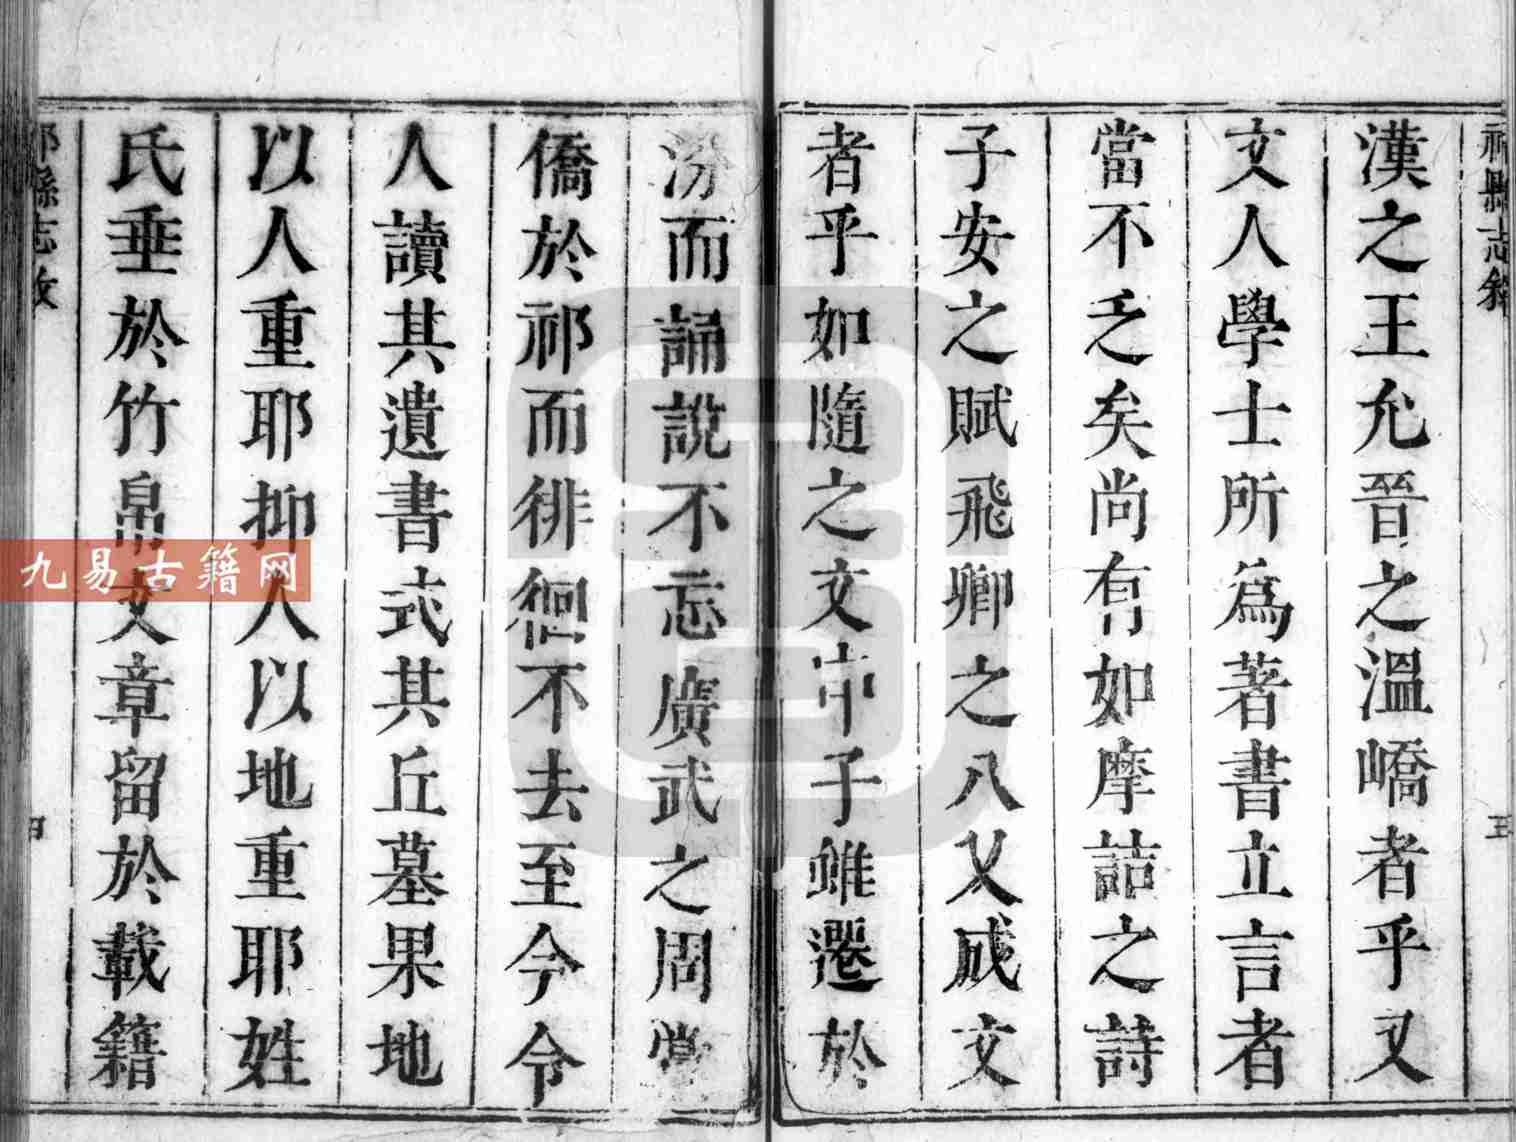 祁縣志敘
三
漢之王允晉之溫嶠者乎又
文人學士所為著書立言者
當不乏矣尚有如摩詰之詩
子安之賦飛卿之八叉成文
者乎如隨之文中子雖遷於
汾而誦說不忘廣武之周黨
僑於祁而徘徊不去至今令
人讀其遺書式其丘墓果地
以人重耶抑人以地重耶姓
氏垂於竹帛文章留於載籍
祁縣志敘
四
九易古籍网